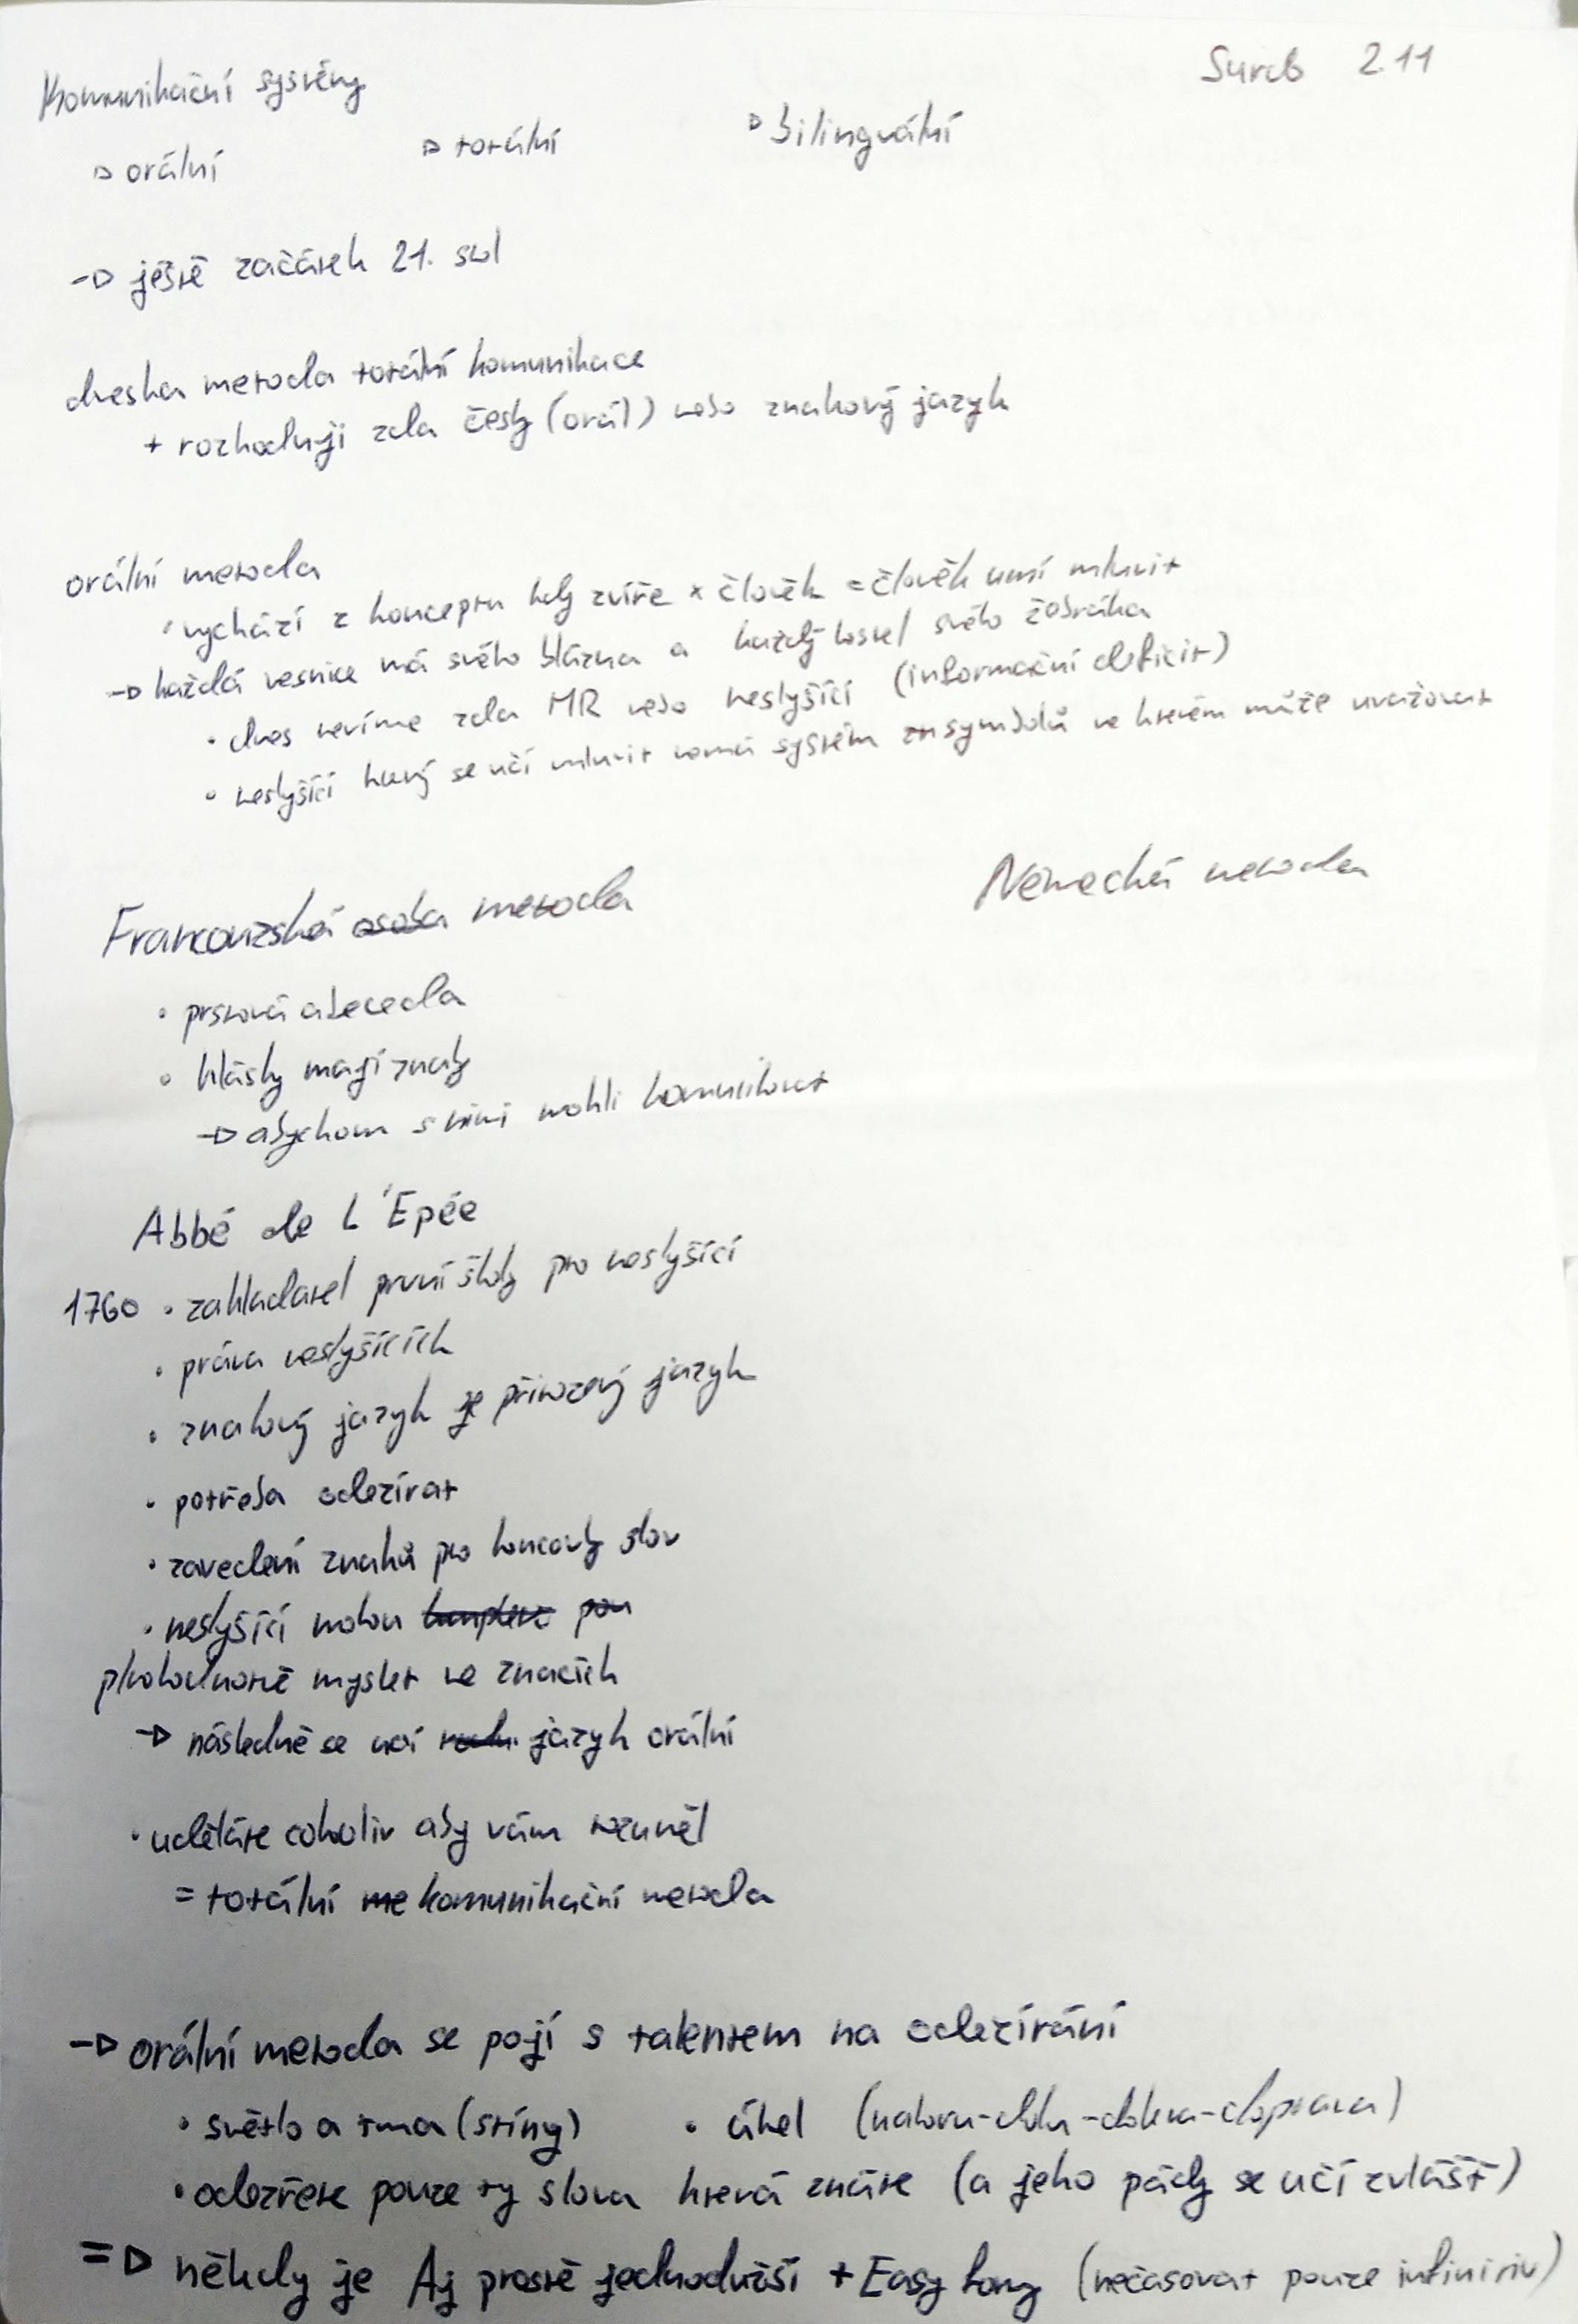 Komunikační systémy
Surdo 2.11
▷ orální ▷ totální ▷ bilingvální
→ ještě začátek 21. stol
dneska metoda totální komunikace
+ rozhodují zda česky (orál) nebo znakový jazyk
orální metoda
• vychází z konceptu kdy zvíře × člověk = člověk umí mluvit
→ každá vesnice má svého blázna a každý kostel svého žebráka
• dnes nevíme zda MR nebo neslyšící (informační deficit)
• neslyšící který se učí mluvit nemá systém symbolů ve kterém může uvažovat
Francouzská osoba metoda
Německá metoda
• prstová abeceda
• hlásky mají znaky
→ abychom s nimi mohli komunikovat
Abbé de L'Epée
1760 • zakladatel první školy pro neslyšící
• práva neslyšících
• znakový jazyk je přirozený jazyk
• potřeba odezírat
• zavedení znaků pro koncovky slov
• neslyšící mohou
plnohodnotně myslet ve znacích
→ následně se učí jazyk orální
• uděláte cokoliv aby vám rozuměl
= totální me komunikační metoda
→ orální metoda se pojí s talentem na odezírání
• světlo a tma (stíny) • úhel (nahoru-dolu-doleva-doprava)
• odezřete pouze ty slova která znáte (a jeho pády se učí zvlášť)
⇒ někdy je Aj prostě jednodušší + Easy (nečasovat pouze infinitiv)